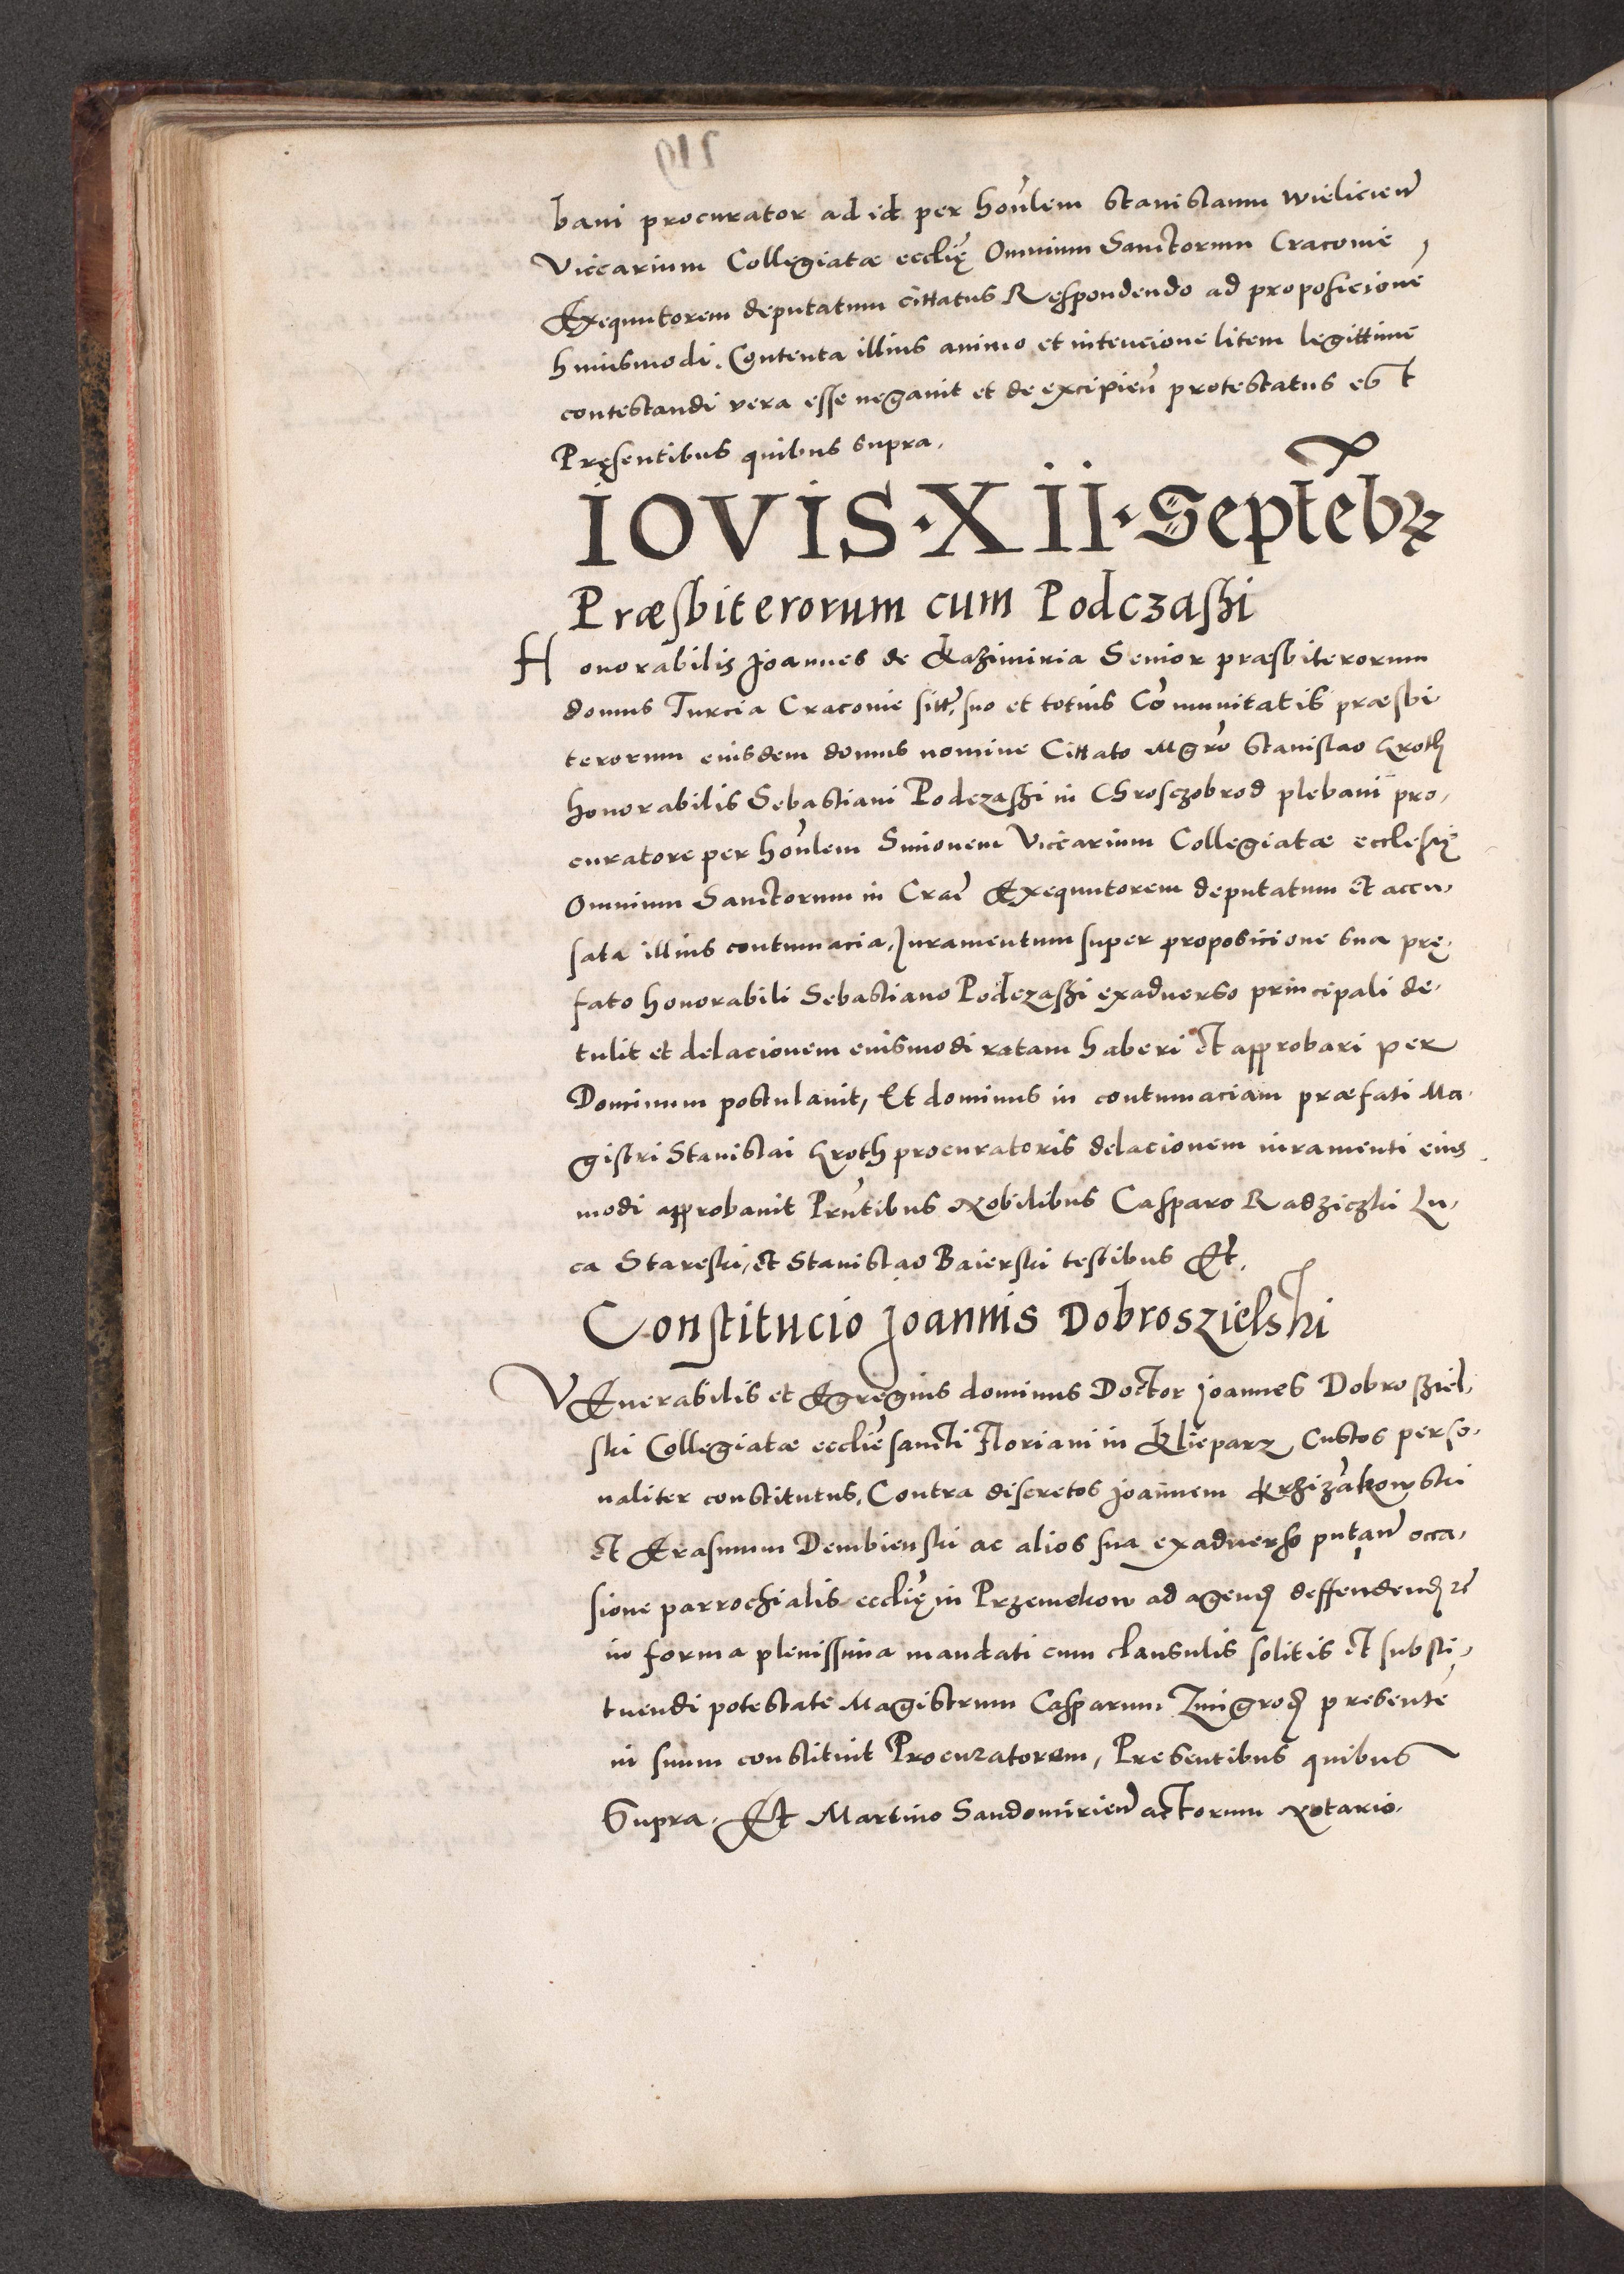 bani procurator ad id per hon̄lem Stanislaum Wielicien̄
Viccarium Collegiatæ ecclię Omnium Sanctorum Cracovie,
Exequutorem deputatum cittatus Respondendo ad proposicionē
huiusmodi. Contenta illius animo et intencione litem legittime
contestandi vera esse negavit et de excipien̄ protestatus est
Pręsentibus quibus supra.
IOVIS·XII·Septēbꝝ
Præsbiterorum cum Podczaski
Honorabilis Joannes de Kazimiria Senior præsbiterorum
domus Turcia Cracovie sitt̄, suo et totius Cōmunitatis præsbi-
terorum eiusdem domus nomine Cittato Mgr̄o Stanislao Kroth
honorabilis Sebastiani Podczaski in Chrosczobrod plebani pro-
curatore per hon̄lem Simonem Viccarium Collegiatæ ecclesię
Omnium Sanctorum in Crac̄ Exequutorem deputatum et accu-
sata illius contumacia, Juramentum super proposicione sua prę-
fato honorabili Sebastiano Podczaski exadverso principali de-
tulit et delacionem eiusmodi ratam haberi et approbari per
Dominum postulavit, Et dominus in contumaciam præfati Ma-
gistri Stanislai Kroth procuratoris delacionem iuramenti eius
modi approbavit Prn̄tibus Nobilibus Casparo Radziczki Lu-
ca Stareski, et Stanislao Baierski testibus Et.
Constitucio Joannis Dobroszielski
VEnerabilis et Egregius dominus Doctor Joannes Dobrosziel-
ski Collegiatæ eccliē sancti Floriani in Klieparz Custos perso-
naliter constitutus, Contra discretos Joannem Krzizakowski
et Erasmum Dembienski ac alios sua exadverso putan̄ occa-
sione parrochialis ecclię in Przemekow ad agend̄ deffendend̄ ꝛc̄
in forma plenissima mandati cum clausulis solitis et substi-
tuendi potestate Magistrum Casparum Zmigrod̄ presentē
in suum constituit Procuratorem, Presentibus quibus
Supra. Et Martino Sandomirien̄ actorum Notario.